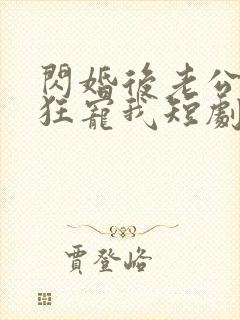 閃婚後老公
狂寵我短劇
賈登峪